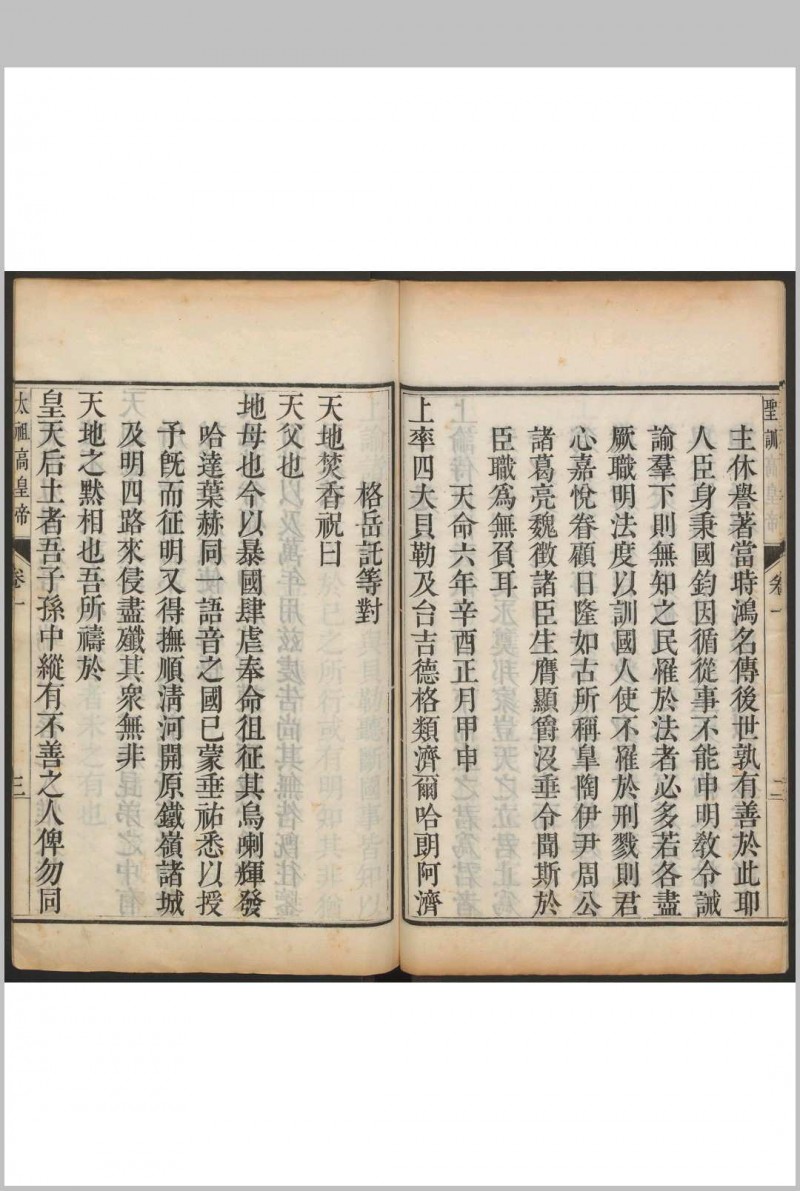 聖訓
二
主休譽著當時鴻名傳後世孰有善於此耶
人臣身秉國鈞因循從事不能申明敎令誡
諭羣下則無知之民罹於法者必多若各盡
厥職明法度以訓國人使不罹於刑戮則君
心嘉悅眷顧日隆如古所稱臯陶伊尹周公
諸葛亮魏徵諸臣生膺顯爵沒垂令聞斯於
臣職爲無負耳
天命六年辛酉正月甲申
上率四大貝勒及台吉德格類濟爾哈朗阿濟
格岳託等對
天地焚香祝曰
天父也
地母也今以暴國肆虐奉命徂征其烏喇輝發
哈達葉赫同一語音之國已蒙垂祐悉以授
予旣而征明又得撫順淸河開原鐵嶺諸城
及明四路來侵盡殲其衆無非
天地之黙相也吾所禱於
皇天后土者吾子孫中縱有不善之人俾勿同
太祖高皇帝 卷一
三